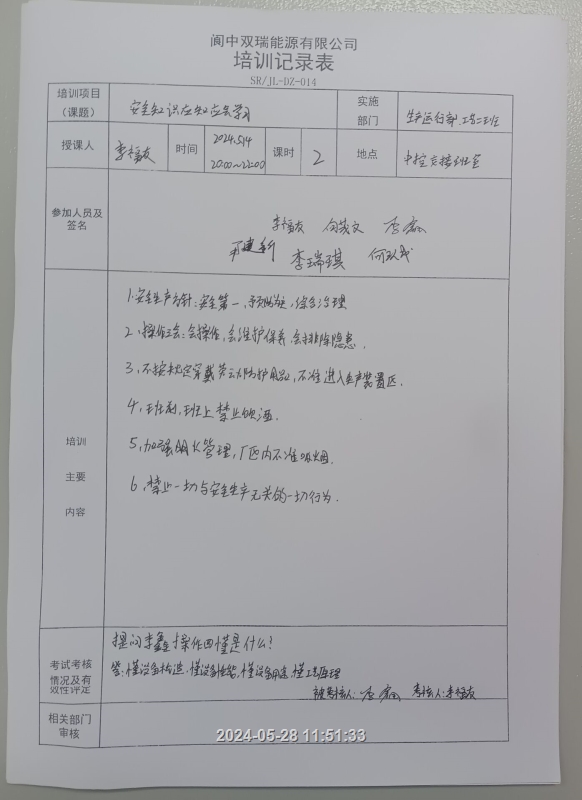 阆中双瑞能源有限公司
培训记录表
SR/JL-DZ-014
培训项目
（课题）
安全知识应知应会学习
实施
部门
生产运行部.工艺二班
授课人
李福友
时间
2024.5.14
20:00~22:00
课时
2
地点
中控交接班室
参加人员及
签名
李福友 李鑫
李瑞琪
培训
主要
内容
1.安全生产方针:安全第一,予防为主,综合治理
2.操作三会:会操作,会维护保养,会排除隐患.
3.不按规定穿戴劳动防护用品,不准进入生产装置区.
4.班前,班上禁止饮酒.
5.加强明火管理,厂区内不准吸烟.
6.禁止一切与安全生产无关的一切行为.
考试考核
情况及有
效性评定
提问李鑫操作四懂是什么?
答:懂设备构造,懂设备性能,懂设备用途,懂工艺原理
被考核人:李鑫 考核人:李福友
相关部门
审核
2024-05-28 11:51:33